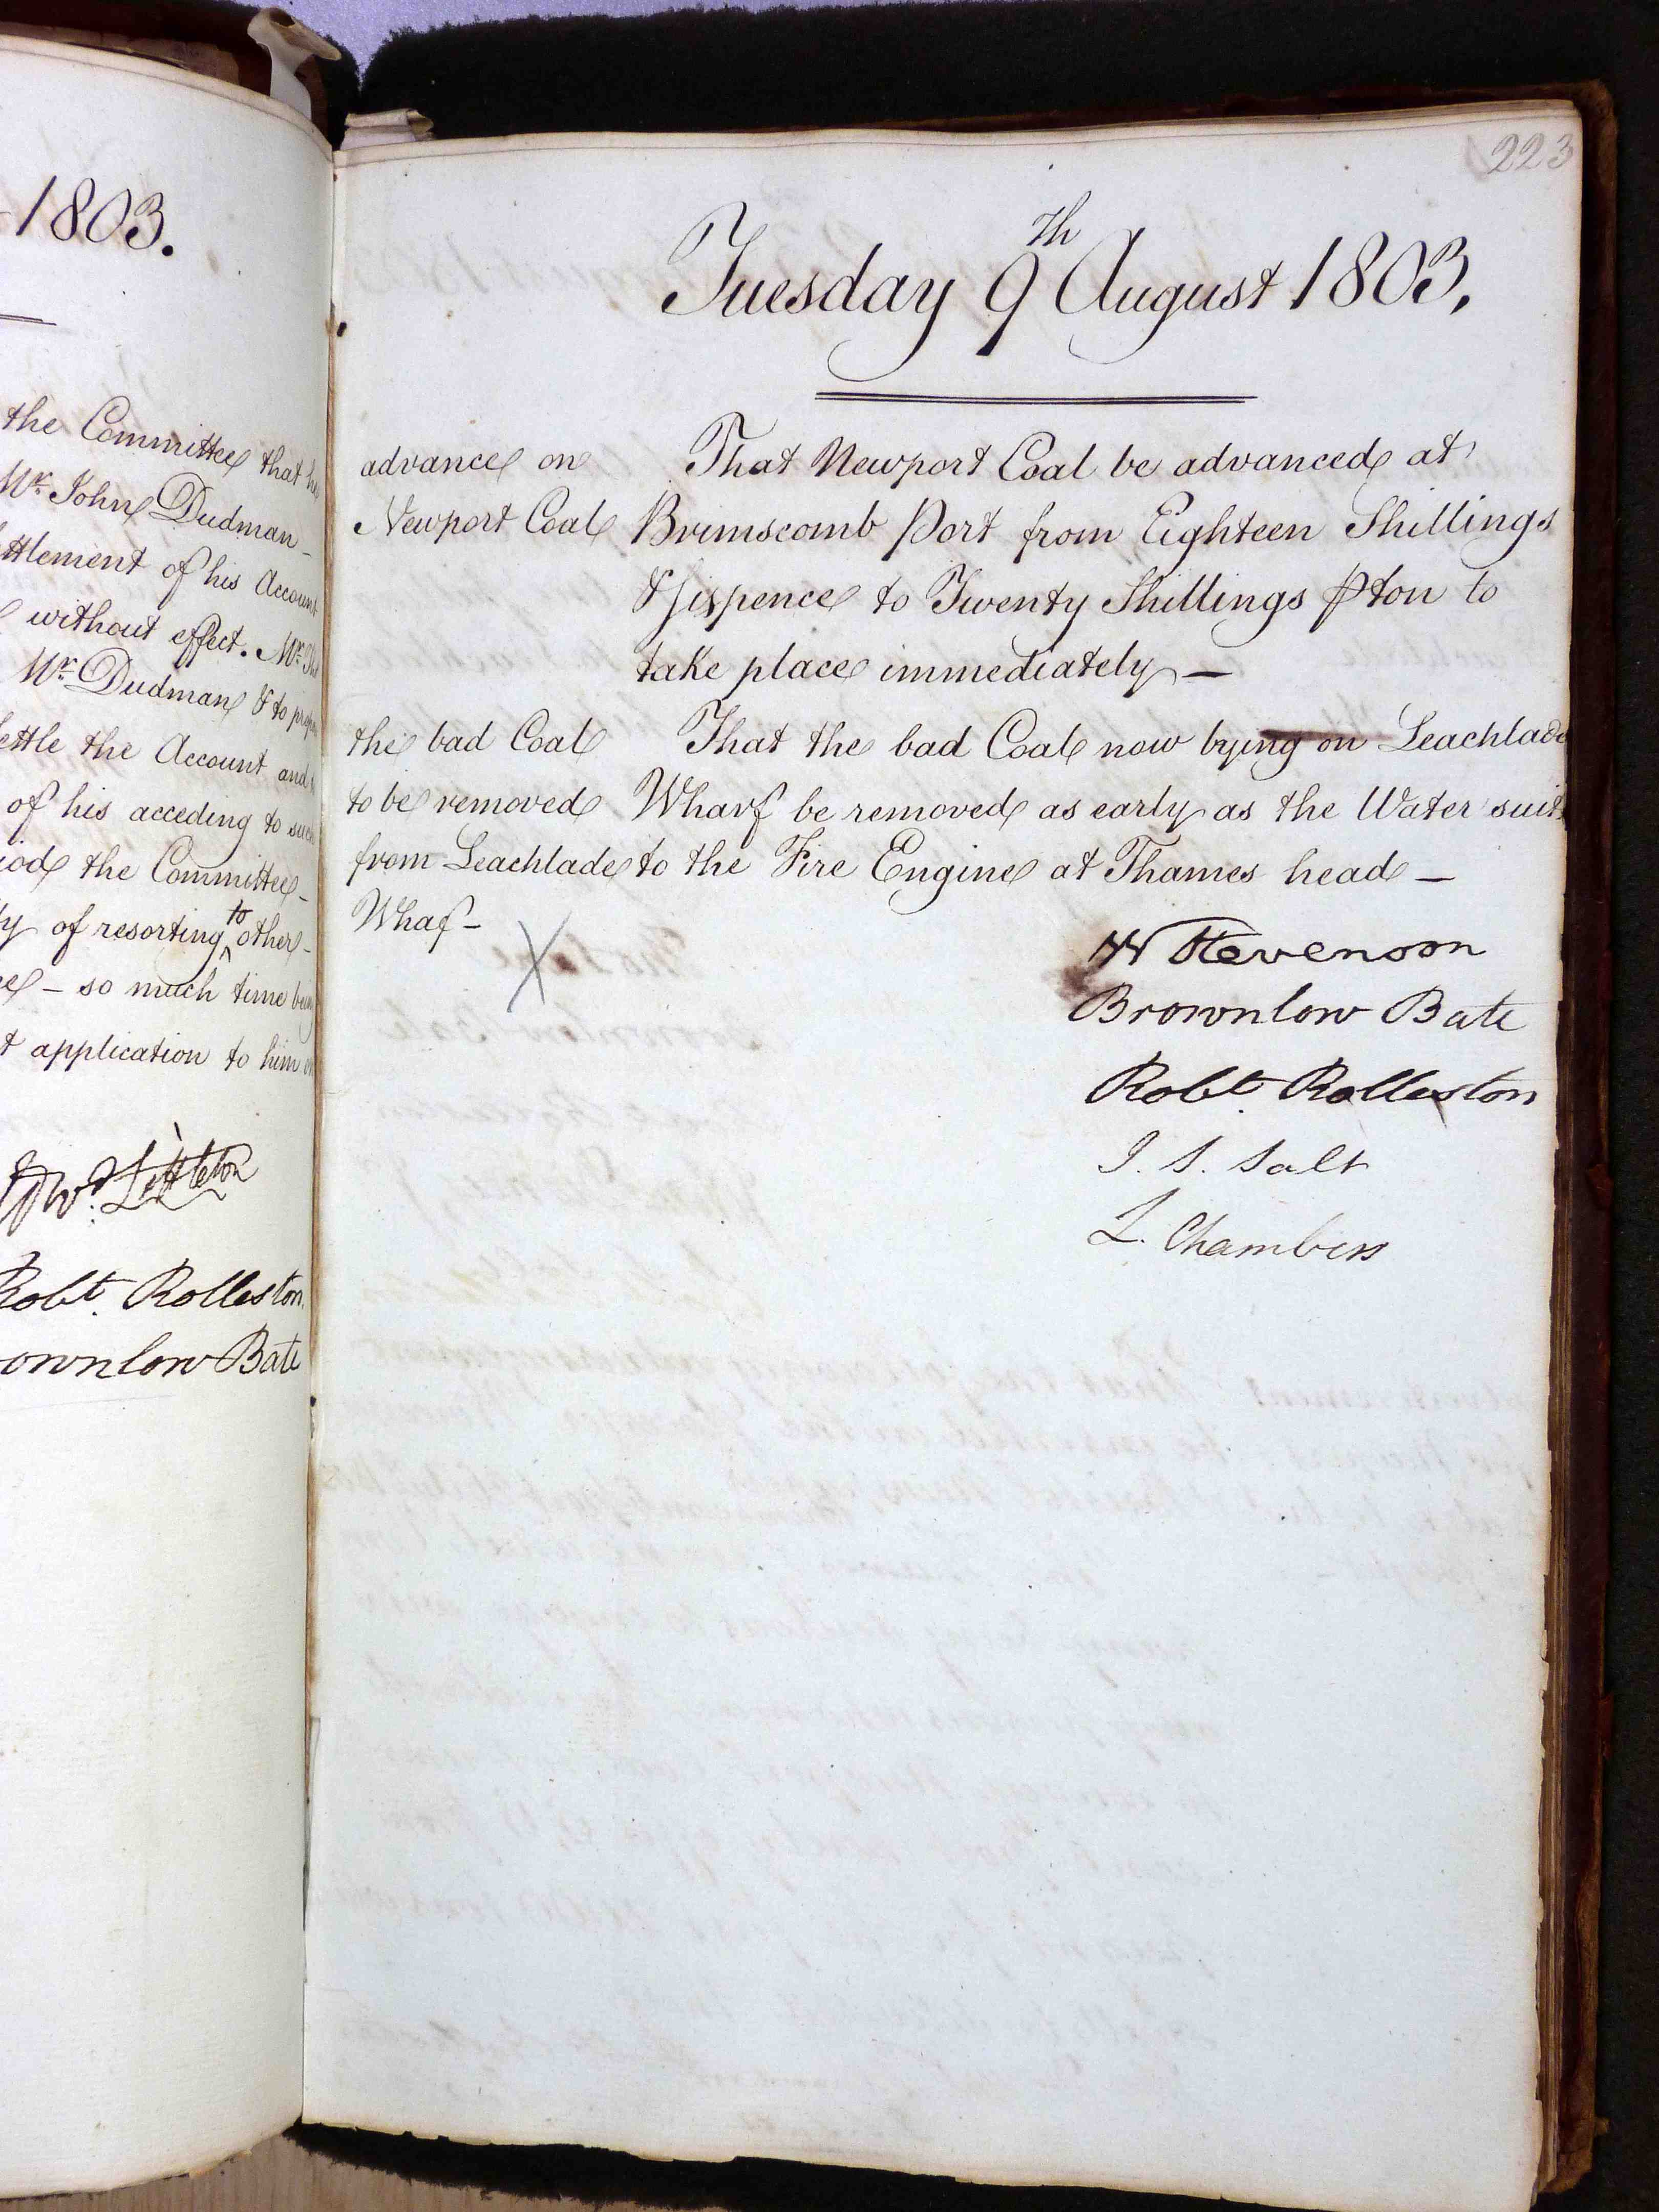 1803.
the Committee that he
Mr. John Dudman
ttlement of his Account
without effect. Mr.
Mr. Dudman & to
ettle the Account and
of his acceding to such
the Committee
of resorting to other
so much time
application to him
Littleton
Robt. Rolleston
ownlow Bate
223
Tuesday 9th August 1803,
advance on
Newport Coal
That Newport Coal be advanced at
Brimscomb Port from Eighteen Shillings
& sixpence to Twenty Shillings ⅌ ton to
take place immediately —
the bad Coal
to be removed
from Leachlade
Whaf -
That the bad Coal now lying on Leachlade
Wharf be removed as early as the Water suits
to the Fire Engine at Thames head —
W Stevenson
Brownlow Bate
Robt. Rolleston
J. S. Salt
L. Chambers